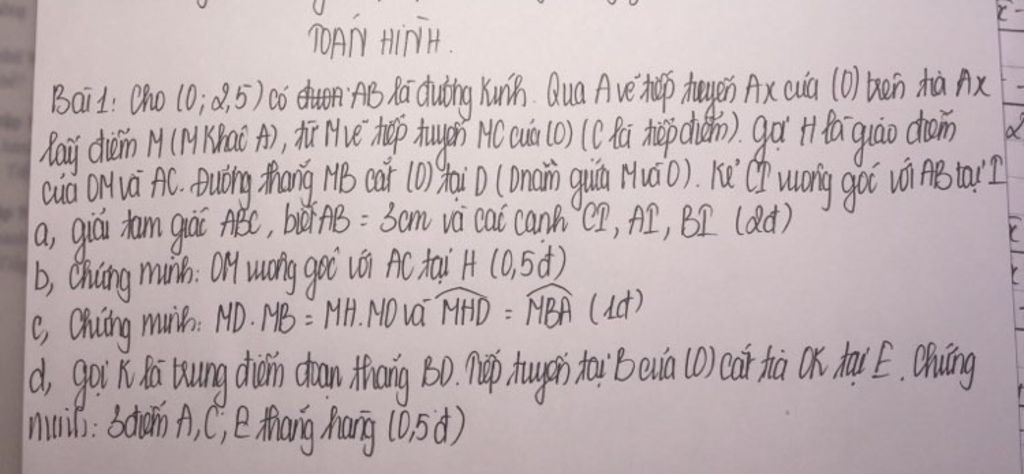 TOÁN HÌNH.
Bài 1: Cho (O; 2,5) có AB là đường kính. Qua A vẽ tiếp tuyến Ax của (O) trên tia Ax
lấy điểm M (M khác A), từ M vẽ tiếp tuyến MC của (O) (C là tiếp điểm). gọi H là giao điểm
của OM và AC. Đường thẳng MB cắt (O) tại D (D nằm giữa M và O). Kẻ CI vuông góc với AB tại I
a, giải tam giác ABC, biết AB = 3cm và các cạnh CI, AI, BI (2đ)
b, Chứng minh: OM vuông góc với AC tại H (0,5đ)
c, Chứng minh: MD.MB = MH.MO và MHD = MBA (1đ)
d, gọi K là trung điểm đoạn thẳng BD. Tiếp tuyến tại B của (O) cắt tia OK tại E. Chứng
minh: 3 điểm A, C, E thẳng hàng (0,5đ)